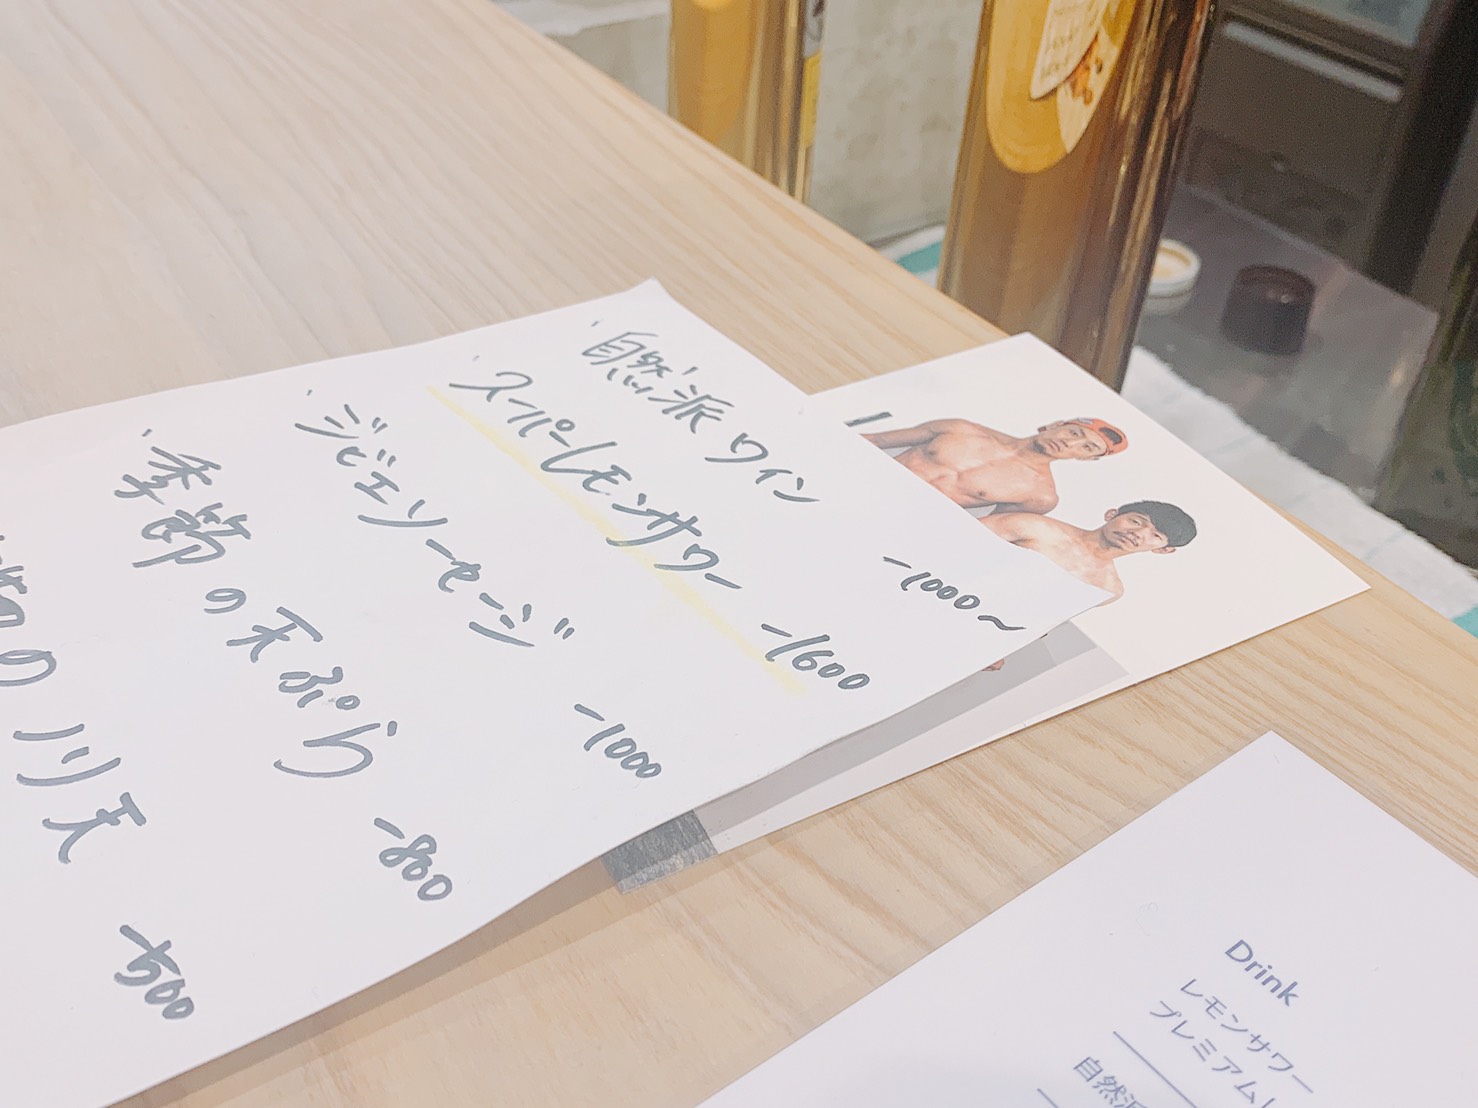 ・自然派ワイン -1000～
・スーパーレモンサワー -1600
・ジビエソーセージ -1000
・季節の天ぷら -800
のノリ天 -500
Drink
レモンサワー
プレミアム
自然派